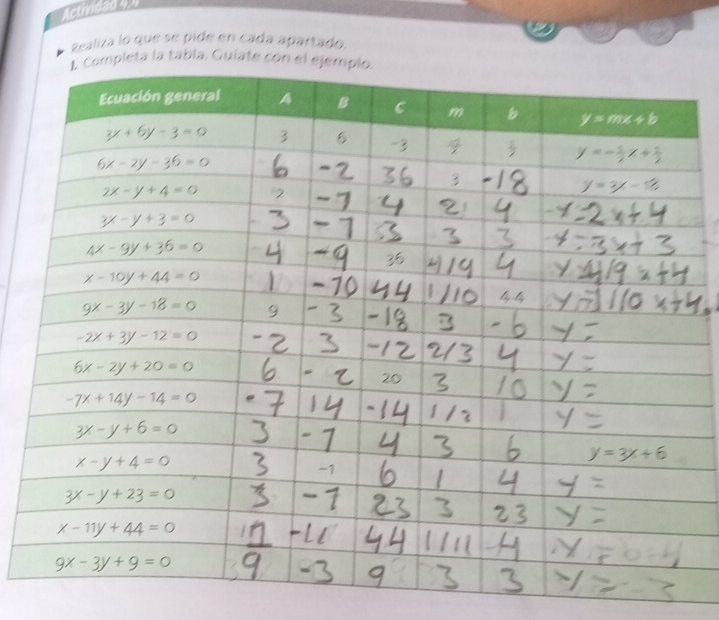 Actividad 4.4
Realiza lo que se pide en cada apartado.
1. Completa la tabla. Guíate con el ejemplo.
Ecuación general A B C m b y = mx + b
3x + 6y - 3 = 0 3 6 -3 -1/2 1/2 y = -1/2x + 1/2
6x - 2y - 36 = 0 6 -2 36 3 -18 y = 3x - 18
2x - y + 4 = 0 2 -1 4 2 4 y=2x+4
3x - y + 3 = 0 3 -1 3 3 3 y=3x+3
4x - 9y + 36 = 0 4 -9 36 4/9 4 y=4/9x+4
x - 10y + 44 = 0 1 -10 44 1/10 4.4 y=1/10x+4.
9x - 3y - 18 = 0 9 -3 -18 3 -6 y=
-2x + 3y - 12 = 0 -2 3 -12 2/3 4 y=
6x - 2y + 20 = 0 6 -2 20 3 10 y=
-7x + 14y - 14 = 0 -7 14 -14 1/2 1 y=
3x - y + 6 = 0 3 -1 4 3 6 y = 3x + 6
x - y + 4 = 0 3 -1 6 1 4 y=
3x - y + 23 = 0 3 -1 23 3 23 y=
x - 11y + 44 = 0 -11 44 1/11 4
9x - 3y + 9 = 0 9 -3 9 3 3